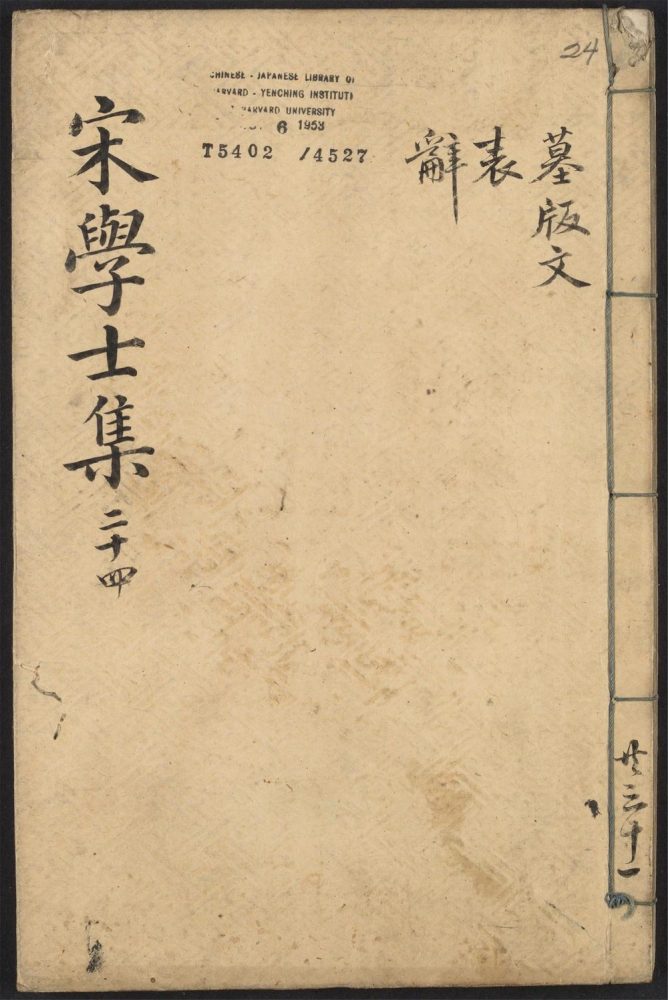 24
墓版文
表
辭
CHINESE - JAPANESE LIBRARY OF
HARVARD - YENCHING INSTITUTE
HARVARD UNIVERSITY
6 1953
T5402 /4527
宋學士集 二十四
共三十一